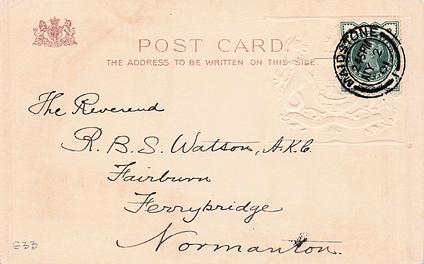 POST CARD.
THE ADDRESS TO BE WRITTEN ON THIS SIDE.
MAIDSTONE
The Reverend
R. B. S. Watson, A.K.C.
Fairburn
Ferrybridge
Normanton.